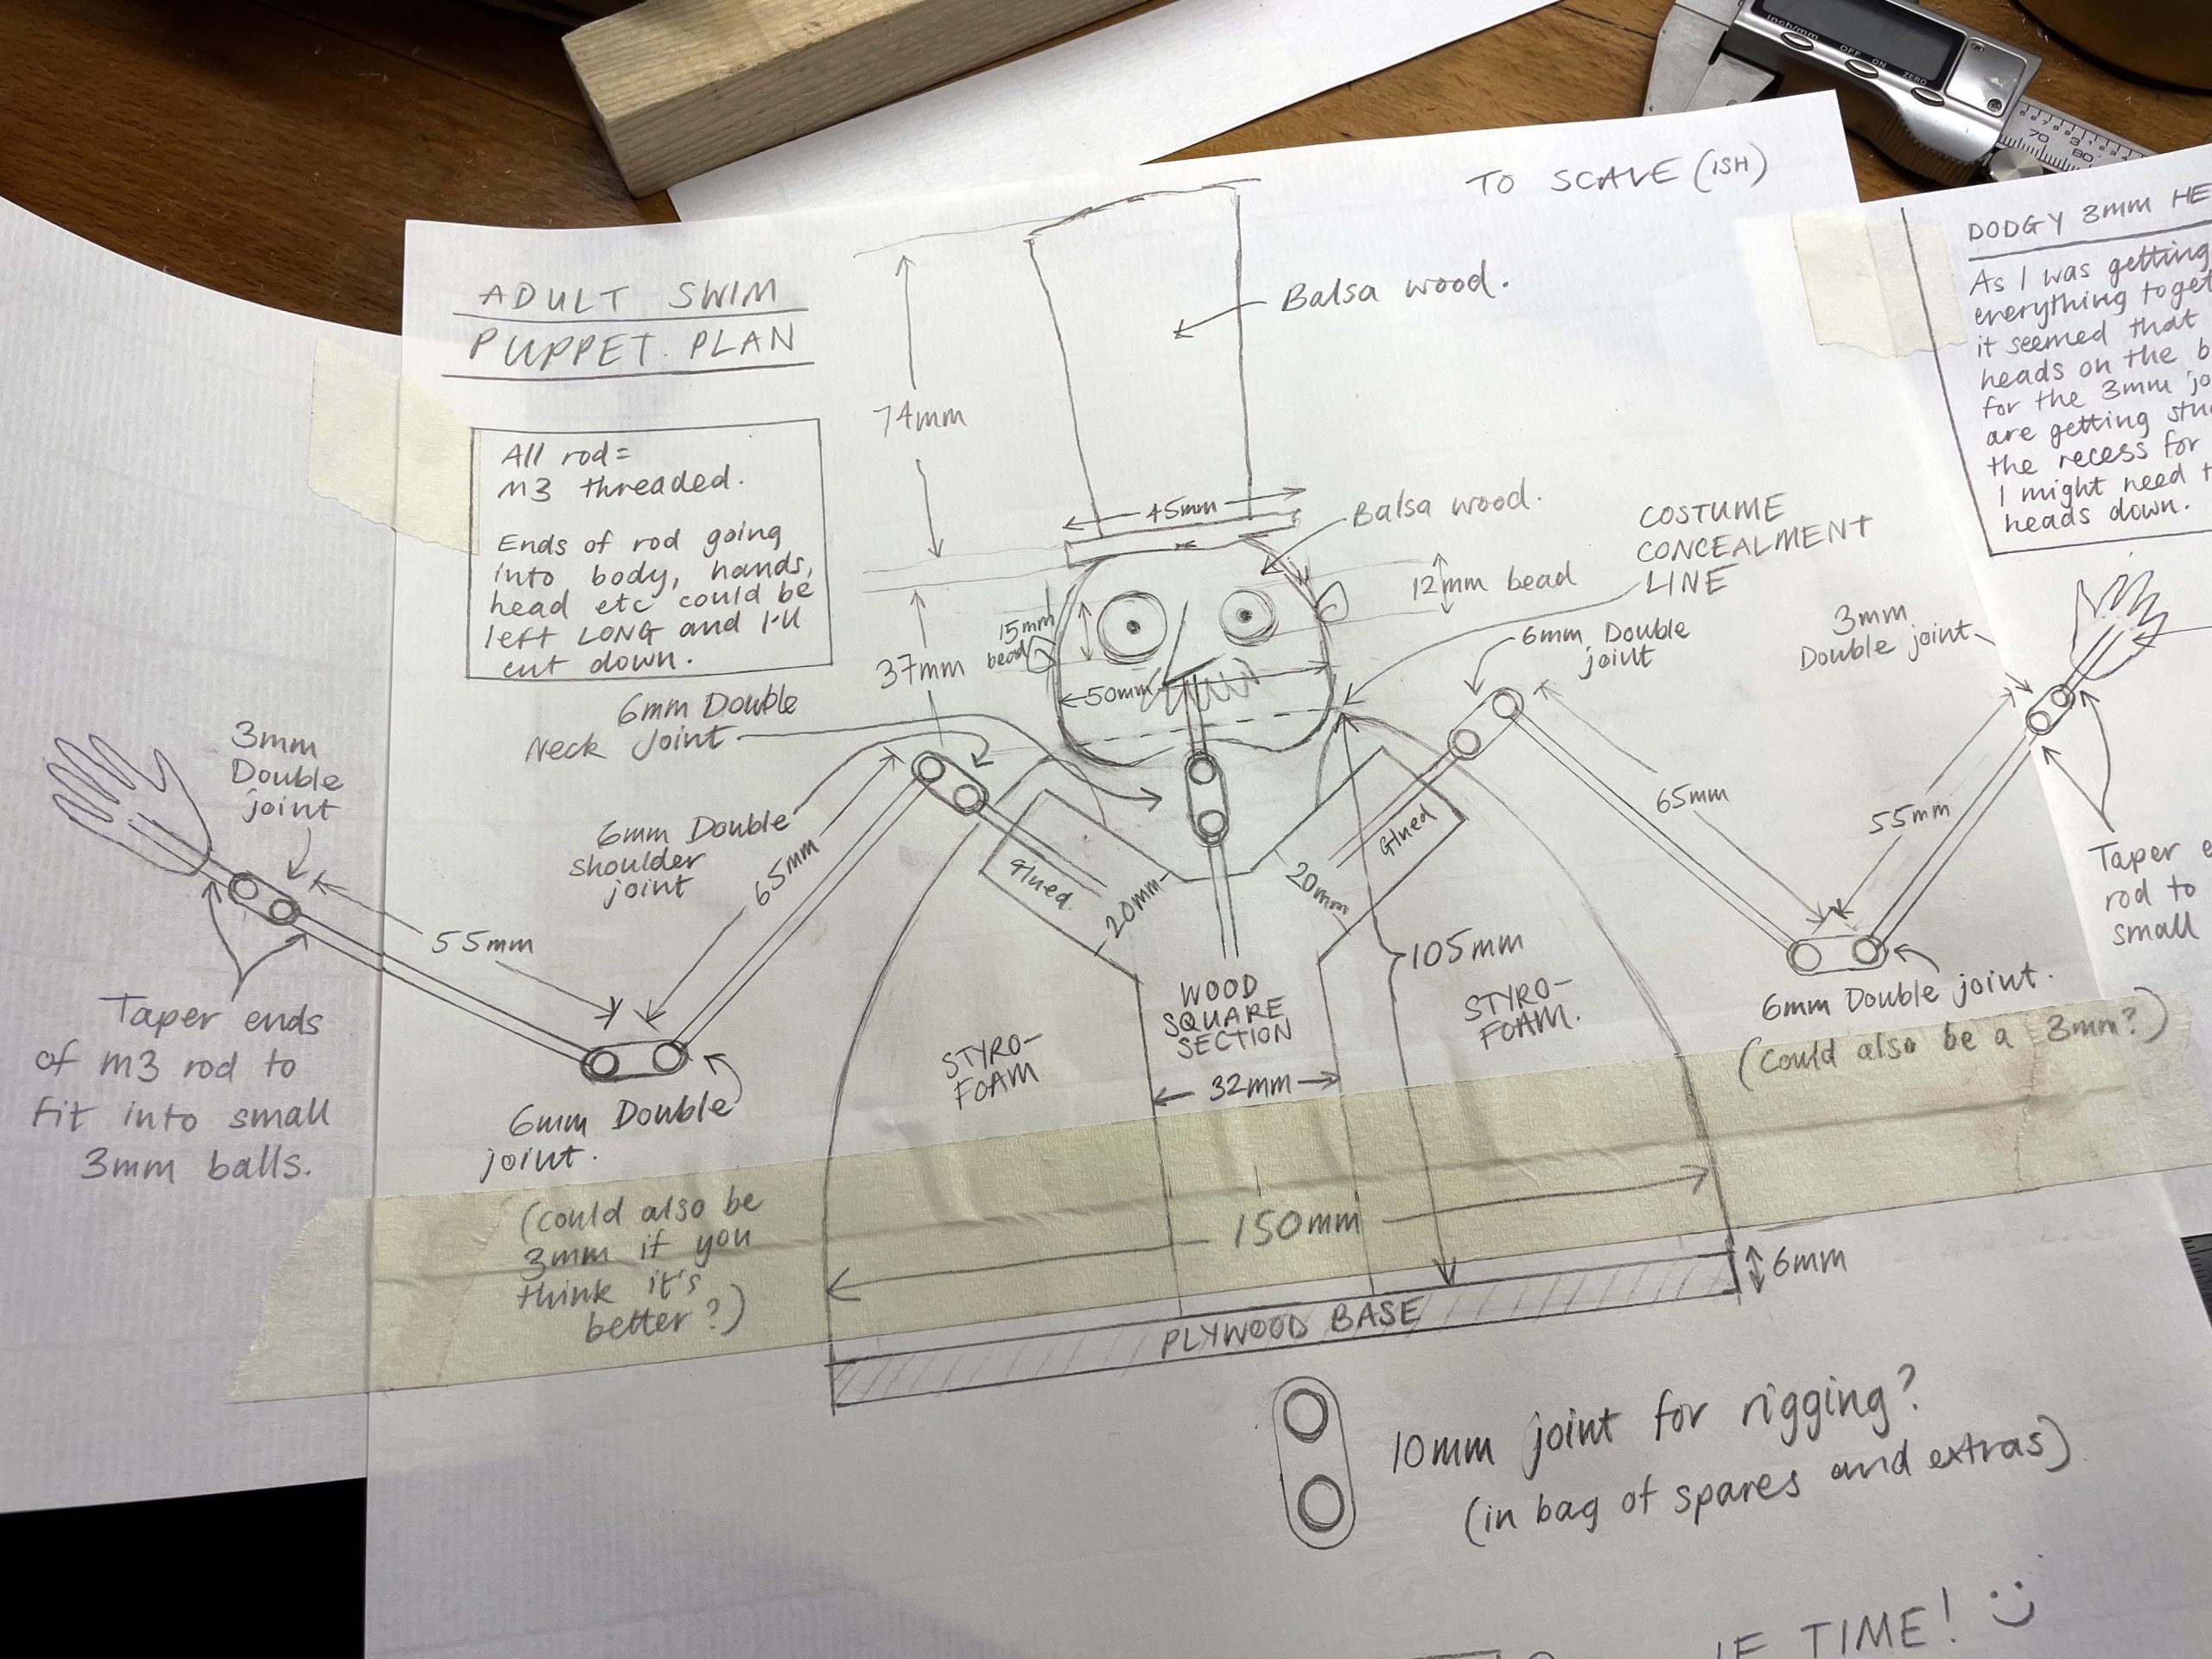 inch/mm
OFF
ON
ZERO
70
80
TO SCALE (ISH)
ADULT SWIM
PUPPET. PLAN
All rod=
M3 threaded.
Ends of rod going
into body, hands,
head etc could be
left LONG and I'll
cut down.
74mm
Balsa wood.
45mm
Balsa wood.
12mm bead
COSTUME
CONCEALMENT
LINE
15mm
bead
37mm
50mm
DODGY 3mm HE
As I was getting
everything toget
it seemed that
heads on the b
for the 3mm jo
are getting stu
the recess for
I might need t
heads down.
6mm Double
Neck Joint
6mm Double
joint
3mm
Double joint
3mm
Double
joint
6mm Double
shoulder
joint
65mm
55mm
Glued
20mm
20mm
Glued
65mm
55mm
Taper ends
of M3 rod to
fit into small
3mm balls.
Taper e
rod to
small
6mm Double
joint.
(could also be
3mm if you
think it's
better?)
6mm Double joint.
(could also be a 3mm?)
STYRO-
FOAM
WOOD
SQUARE
SECTION
32mm
105mm
STYRO-
FOAM.
150mm
6mm
PLYWOOD BASE
10mm joint for rigging?
(in bag of spares and extras)
IF TIME! :)